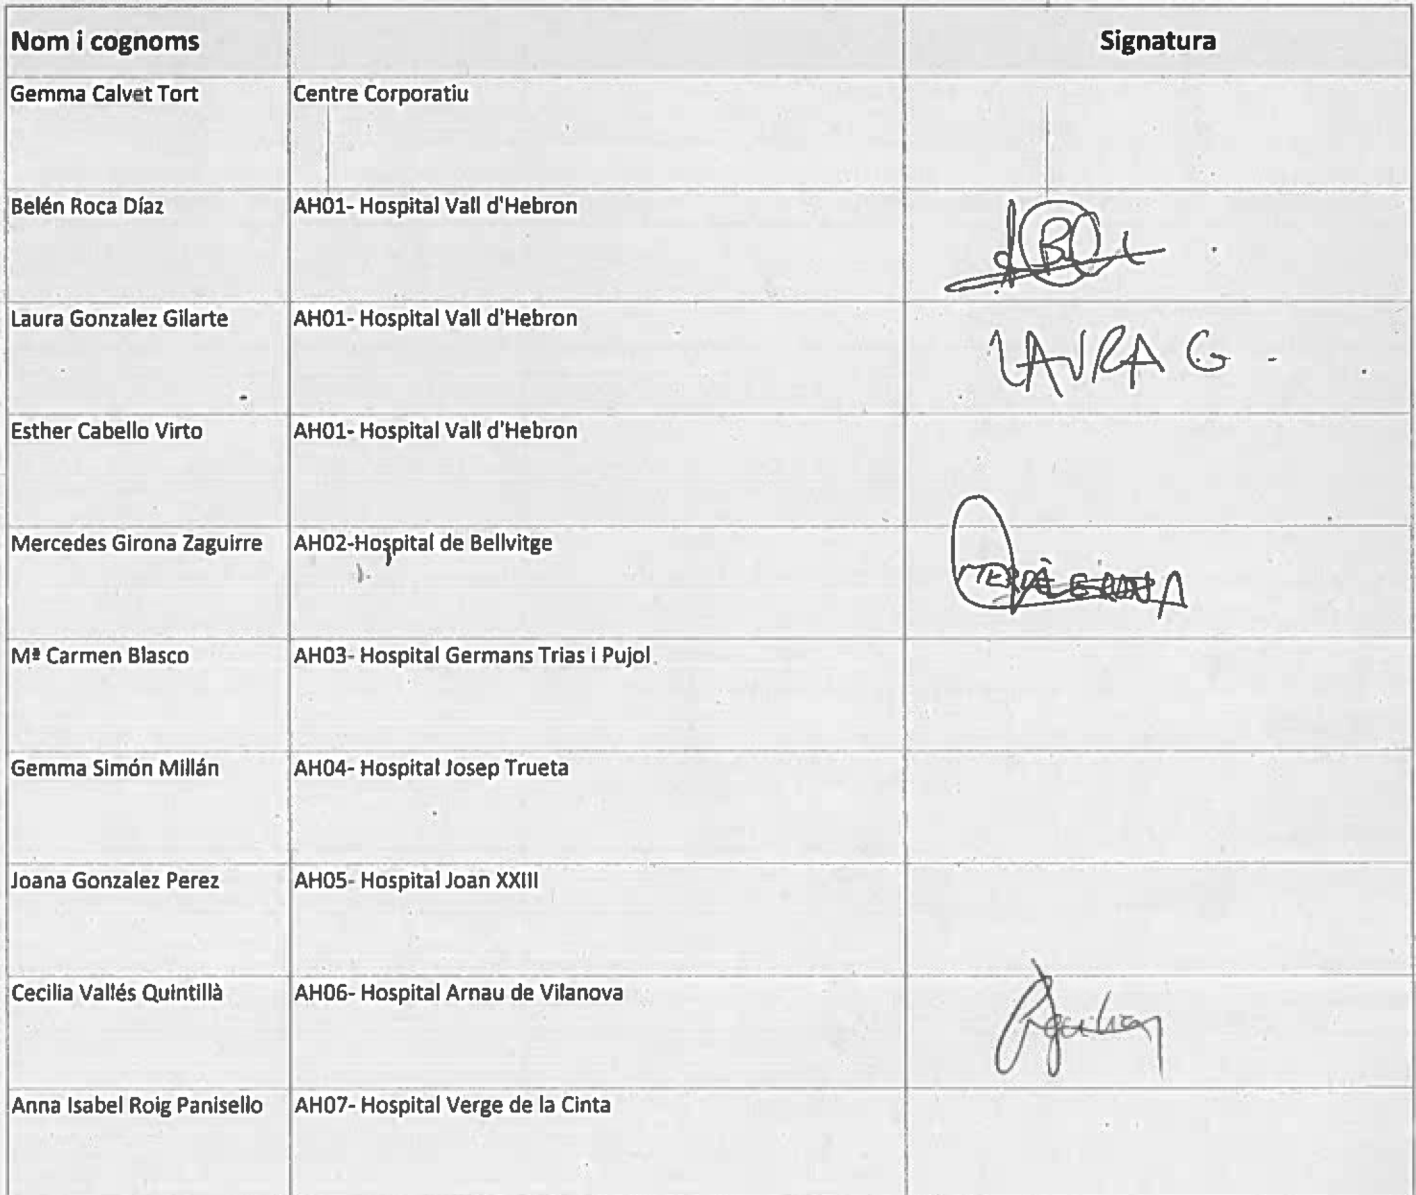 Nom i cognoms Signatura
Gemma Calvet Tort Centre Corporatiu
Belén Roca Díaz AH01- Hospital Vall d'Hebron
Laura Gonzalez Gilarte AH01- Hospital Vall d'Hebron LAURA G.
Esther Cabello Virto AH01- Hospital Vall d'Hebron
Mercedes Girona Zaguirre AH02-Hospital de Bellvitge
Mª Carmen Blasco AH03- Hospital Germans Trias i Pujol
Gemma Simón Millán AH04- Hospital Josep Trueta
Joana Gonzalez Perez AH05- Hospital Joan XXIII
Cecilia Vallés Quintillà AH06- Hospital Arnau de Vilanova
Anna Isabel Roig Panisello AH07- Hospital Verge de la Cinta